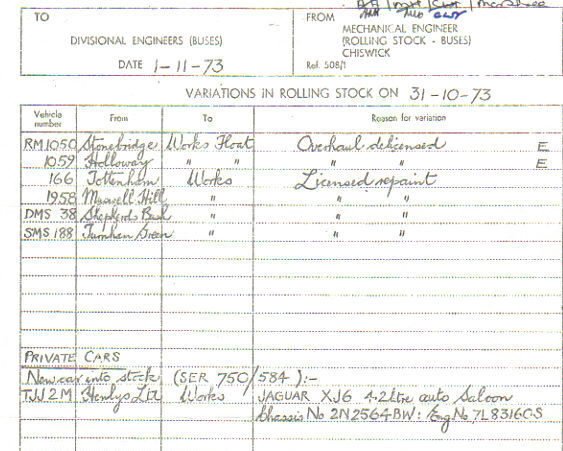 TO
DIVISIONAL ENGINEERS (BUSES)
DATE 1-11-73
FROM
MECHANICAL ENGINEER
(ROLLING STOCK - BUSES)
CHISWICK
Ref. 508/1
VARIATIONS IN ROLLING STOCK ON 31-10-73
Vehicle number From To Reason for variation
RM1050 Stonebridge Works Float Overhaul delicensed E
1059 Holloway " " " " E
166 Tottenham Works Licensed repaint
1958 Muswell Hill " " "
DMS 38 Shepherds Bush " " "
SMS 188 Turnham Green " " "
PRIVATE CARS
New car into stock (SER 750/584):-
TJJ 2M Henlys Ltd Works JAGUAR XJ6 4.2 litre auto Saloon
Chassis No 2N2564BW: Eng No 7L8316CS